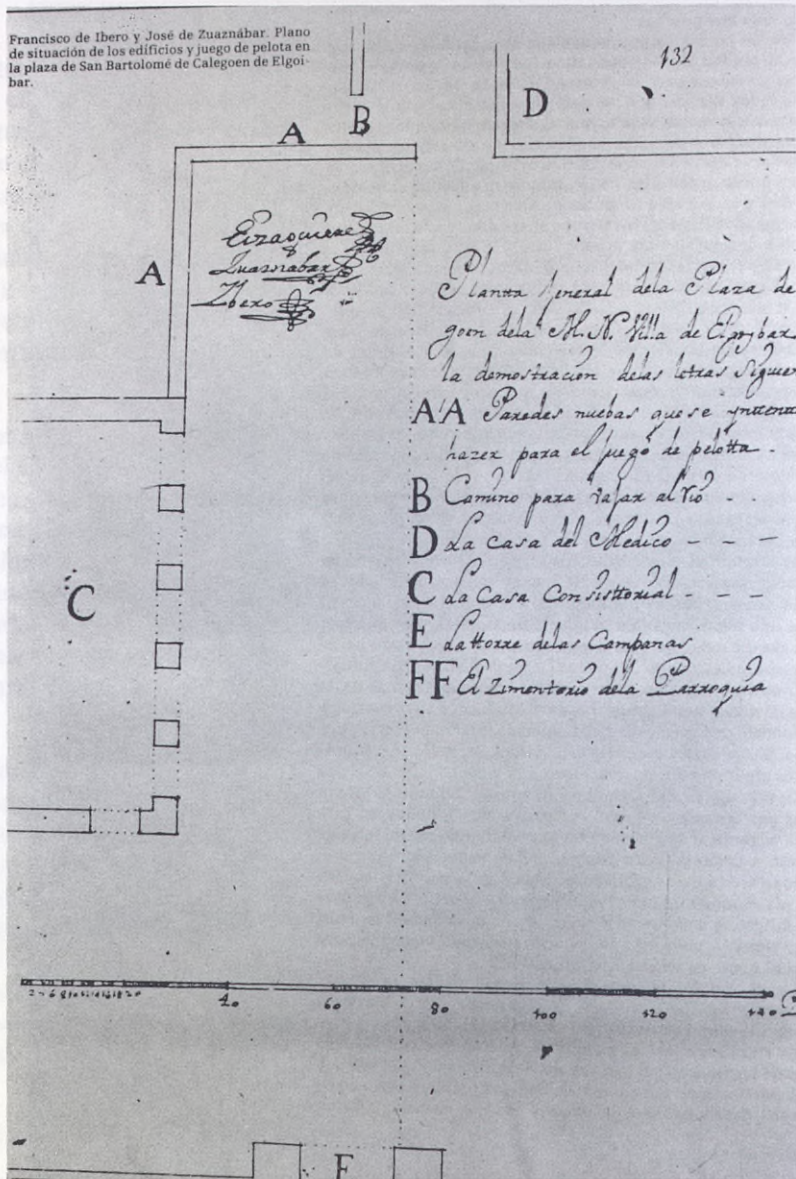 Francisco de Ibero y José de Zuaznábar. Plano
de situación de los edificios y juego de pelota en
la plaza de San Bartolomé de Calegoen de Elgoi-
bar.
132
B
D
A
A
Eizaguirre
Zuaznabar
Ybero
Plantta General dela Plaza de
goen dela M. N. Villa de Elgoybar
la demostracion delas letras siguien
AA Paredes nuebas que se yntenta
hazer para el juego de pelotta.
B Camino para vajar al rio - -
D La casa del Medico - - -
C La Casa Consisttorial - - -
E La ttorre delas Campanas
FF El zimentorio dela Parroquia
C
2 4 6 8 10 12 14 16 18 20 40 60 80 100 120 140
E